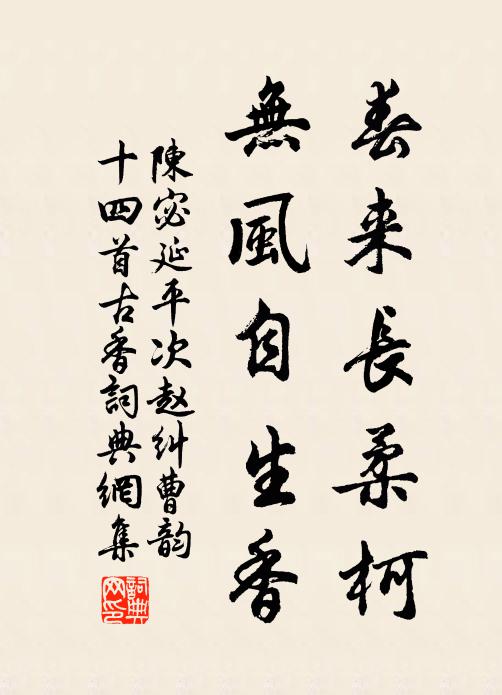 春来長柔柯
無風自生香
陳宓延平次赵糾曹韵
十四首古香詞典網集
詞典网印